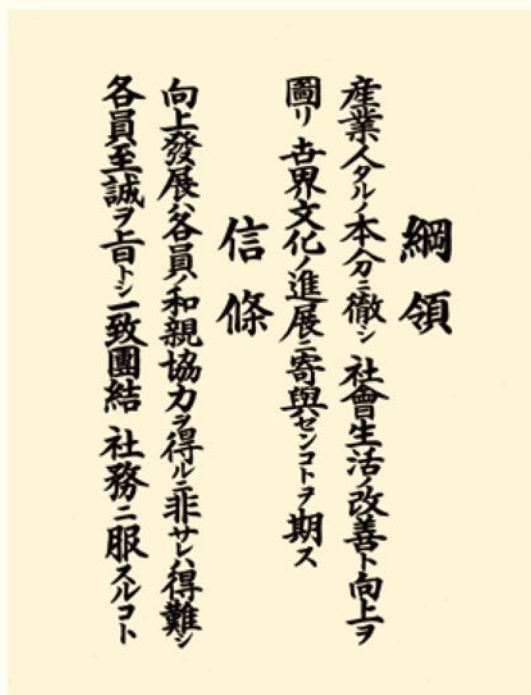 綱領
産業人タルノ本分ニ徹シ 社會生活ノ改善ト向上ヲ
圖リ 世界文化ノ進展ニ寄與センコトヲ期ス
信條
向上發展ハ各員ノ和親協力ヲ得ルニ非サレハ得難シ
各員至誠ヲ旨トシ一致團結 社務ニ服スルコト